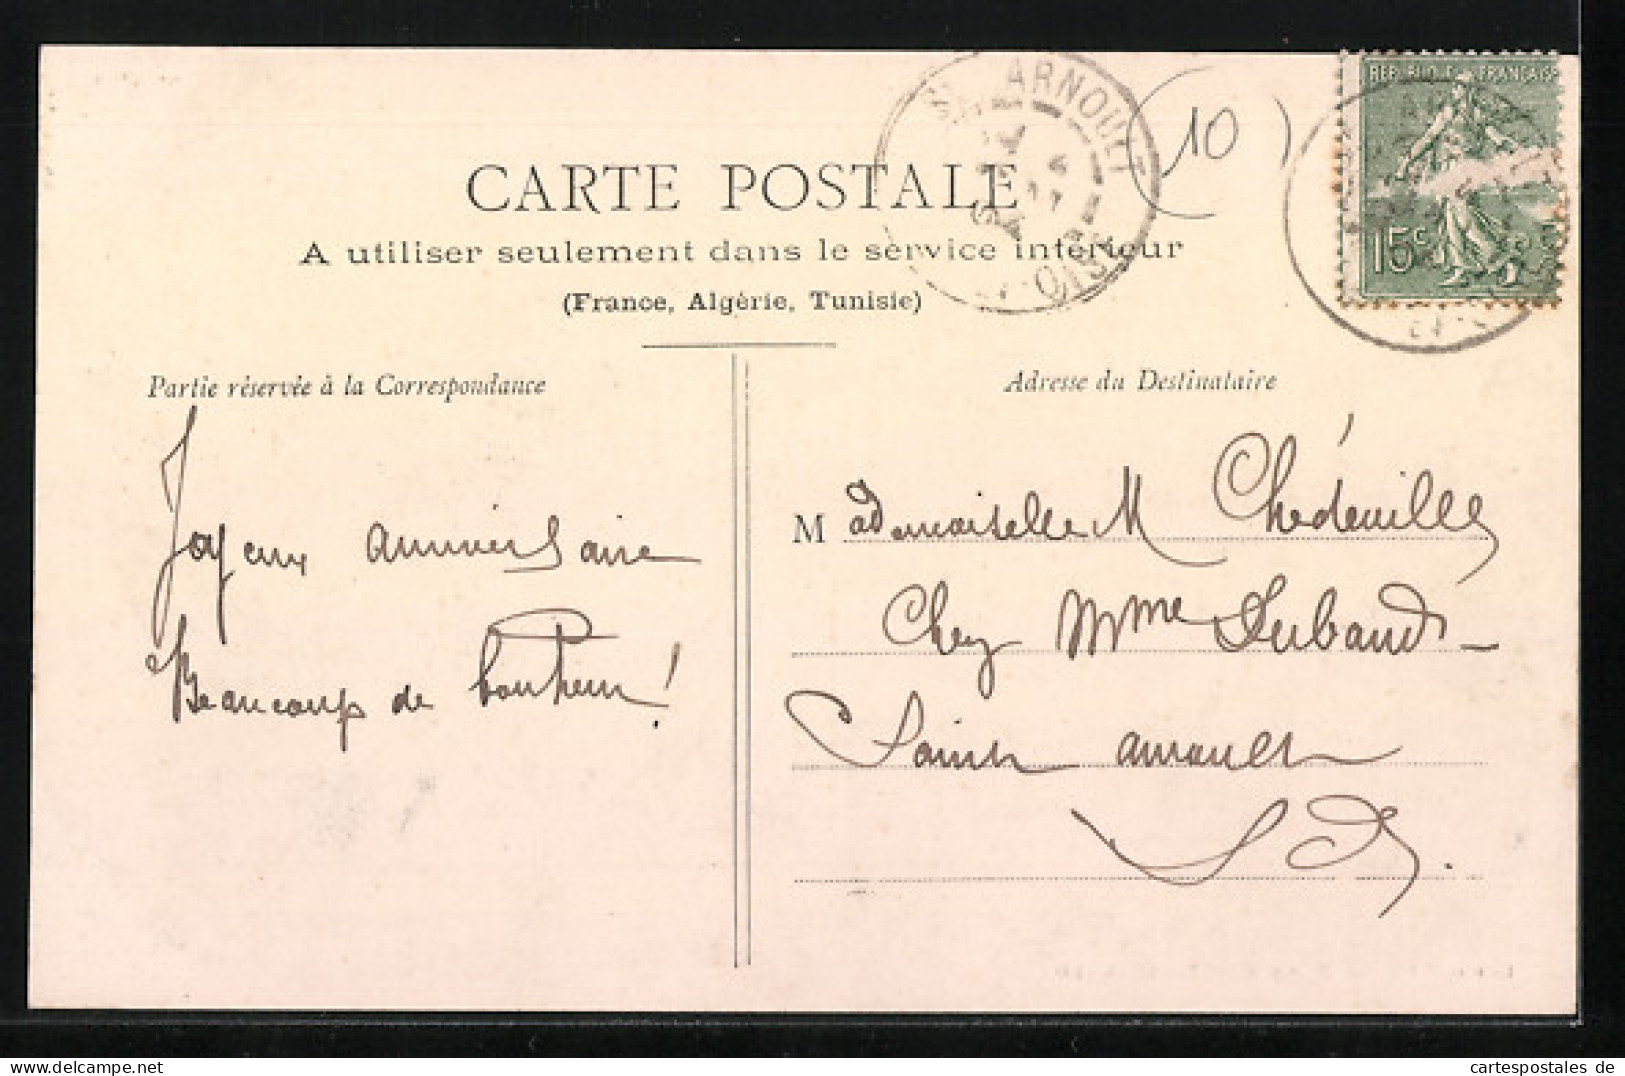 ST ARNOULT
S.-ET-OISE
10
REPUBLIQUE FRANÇAISE
15c
CARTE POSTALE
A utiliser seulement dans le service intérieur
(France, Algérie, Tunisie)
Partie réservée à la Correspondance
Joyeux anniversaire
Beaucoup de bonheur !
Adresse du Destinataire
Mademoiselle M Chédeville
Chez Mme Dubaud
Saint Arnoult
S O.
cartespostales de